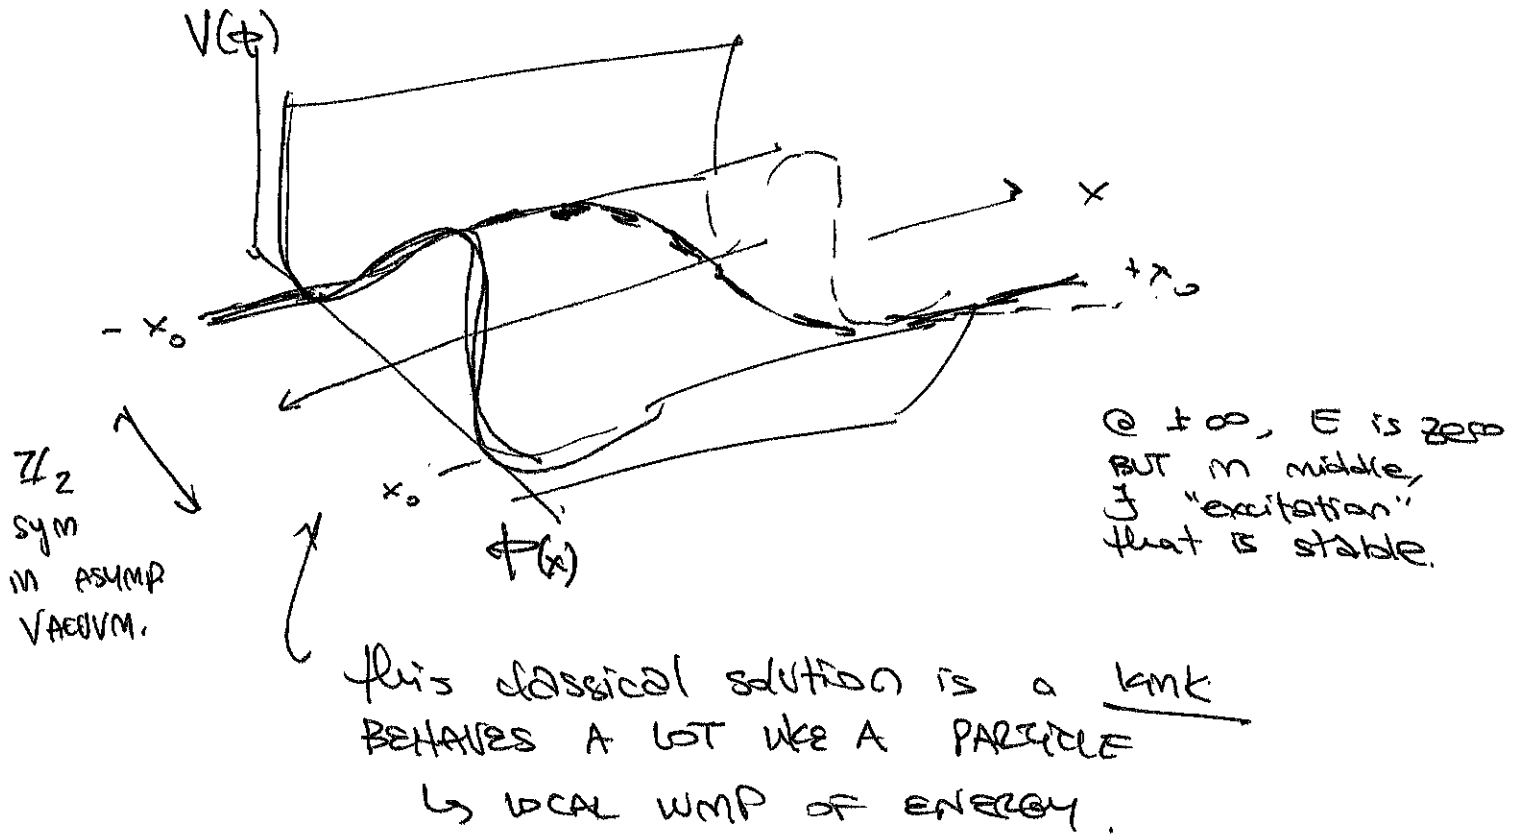 V(ϕ)
x
- x₀
+ x₀
x₀
ϕ(x)
ℤ₂
sym
in ASYMP.
VACUUM.
@ ± ∞, E is zero
BUT in middle,
∃ "excitation"
that is stable.
this classical solution is a kink
BEHAVES A LOT LIKE A PARTICLE
↳ LOCAL LUMP OF ENERGY.